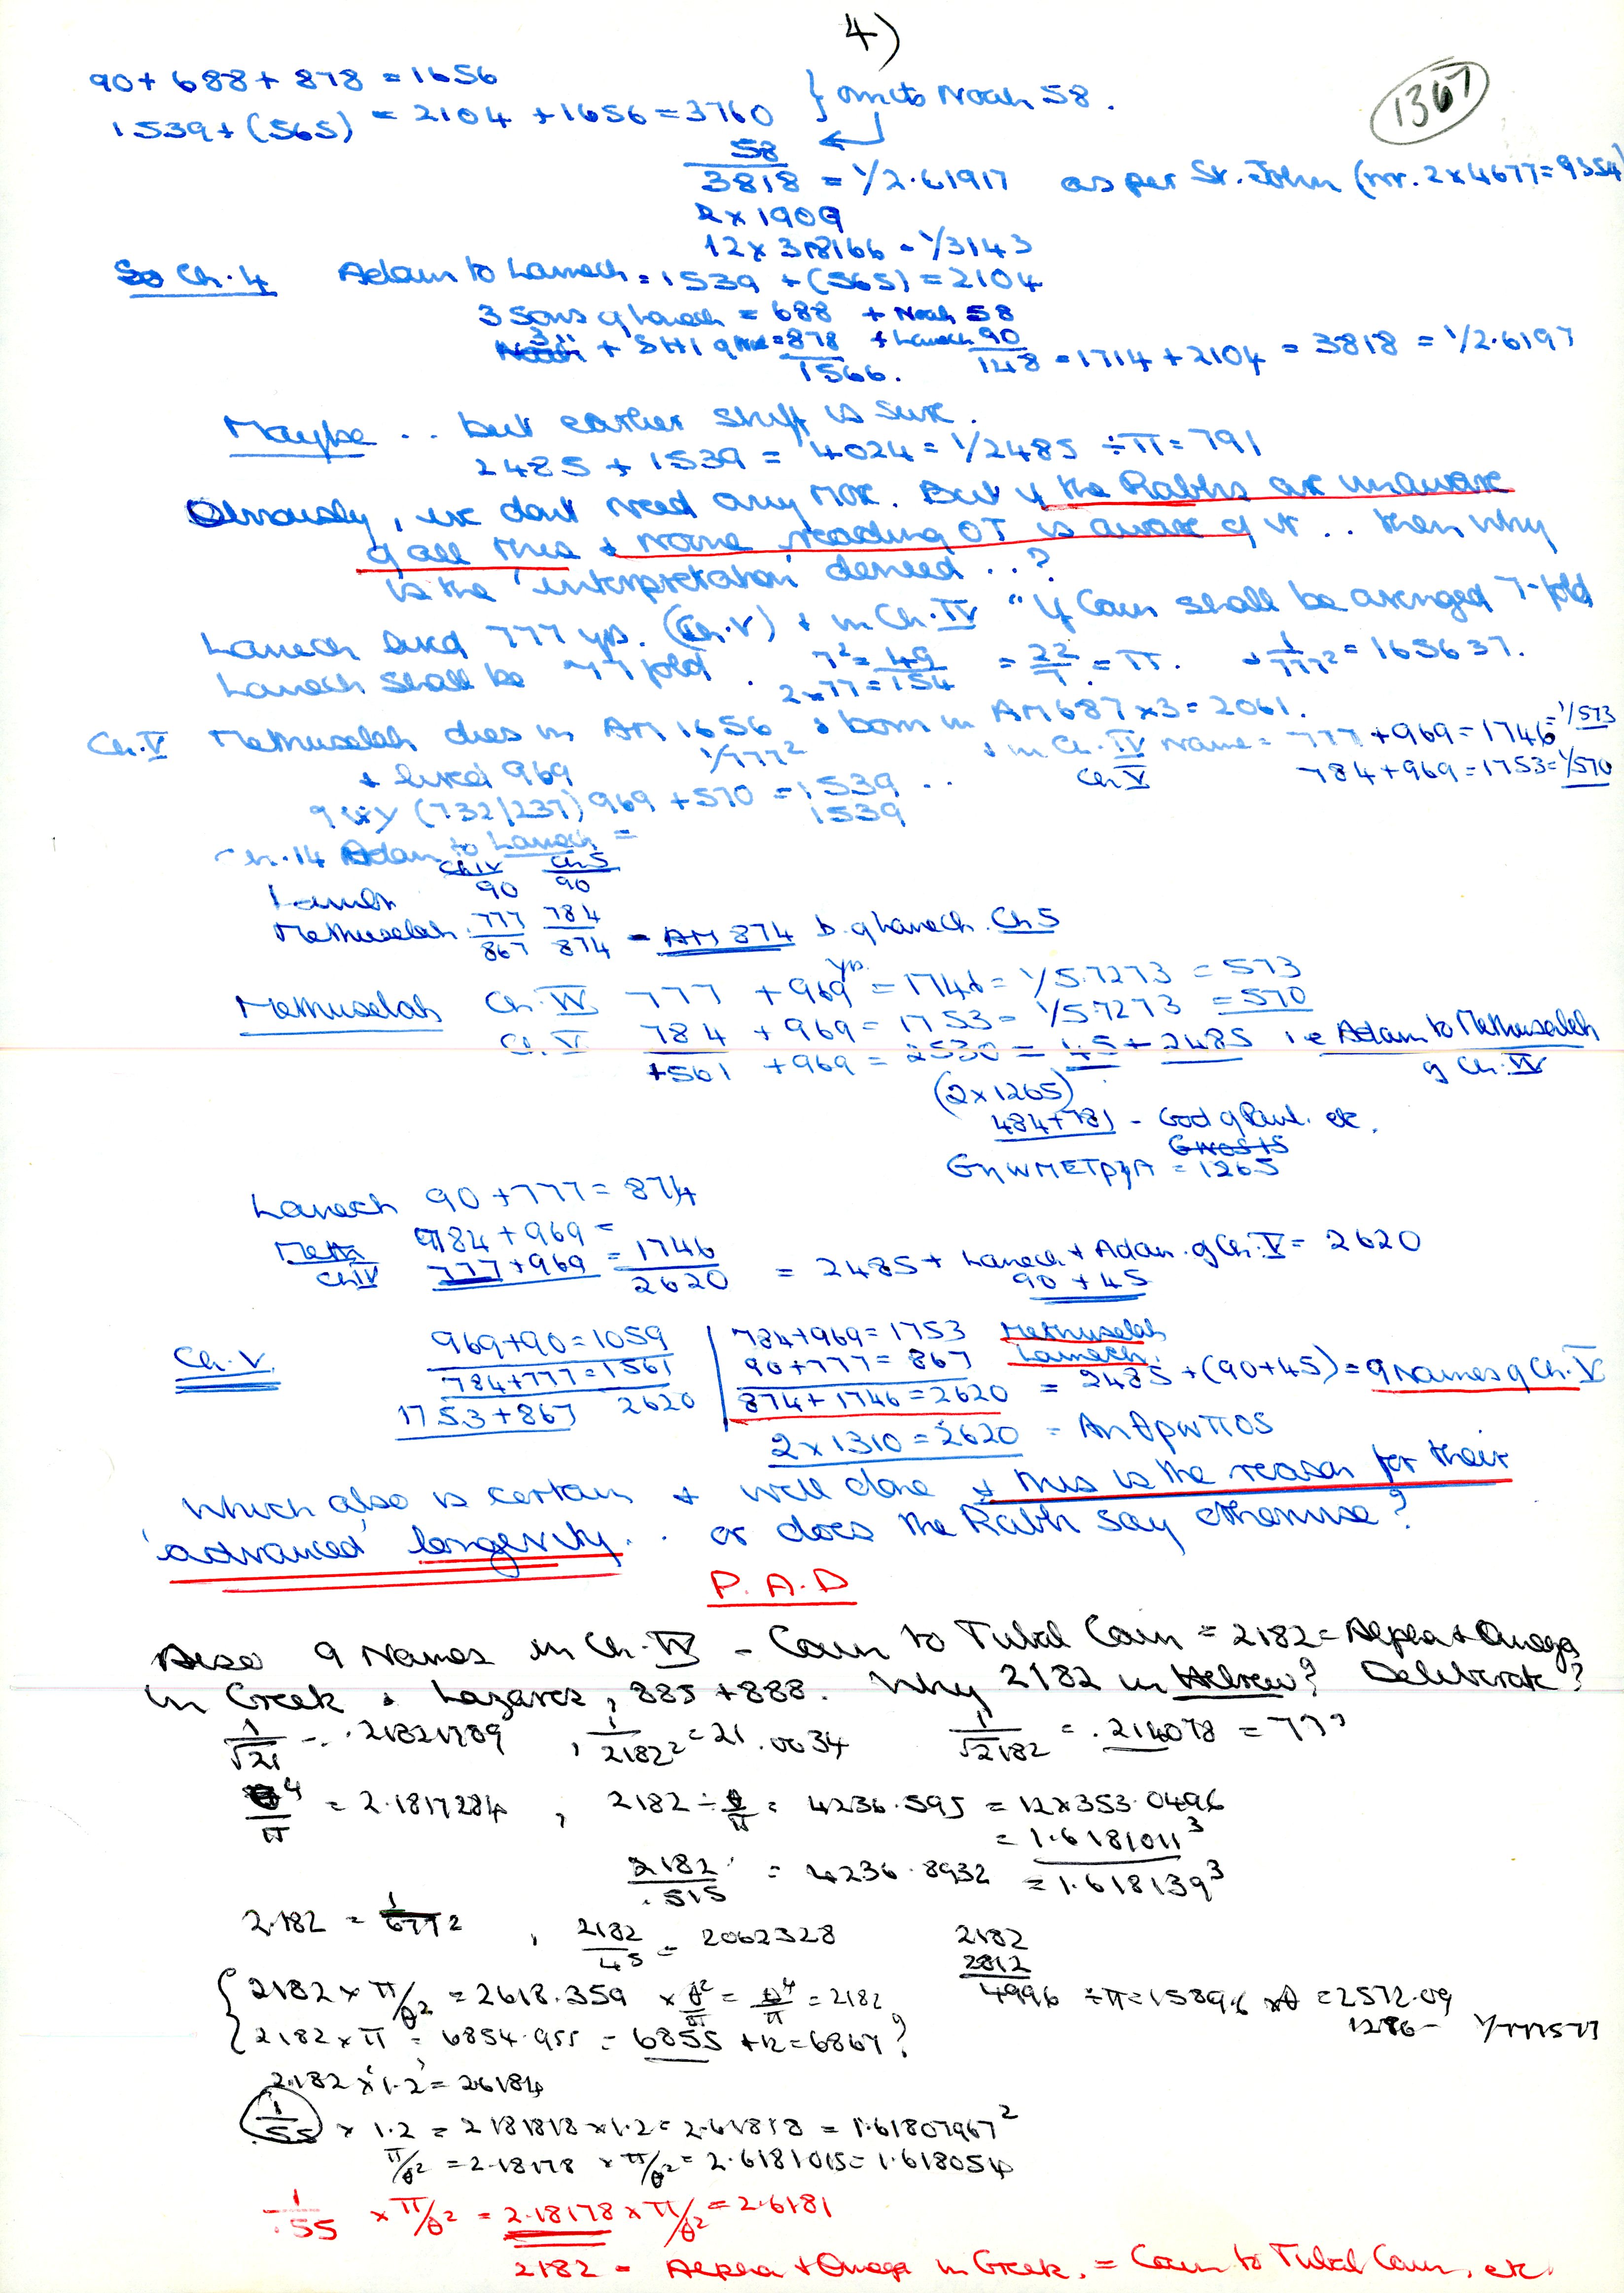 4)
1367
90 + 688 + 878 = 1656
1539 + (565) = 2104 + 1656 = 3760 } omits Noah 58.
58
3818 = 1/2.61917 as per St. John (nr. 2 x 4677 = 9354)
2 x 1909
12 x 318166 - 1/3143
So Ch. 4 Adam to Lamech = 1539 + (565) = 2104
3 Sons of Lamech = 688 + Noah 58
= 878 + Lamech 90
1566. 148 = 1714 + 2104 = 3818 = 1/2.6197
Maybe .. but earlier stuff is sure.
2485 + 1539 = 4024 = 1/2485 ÷ π = 791
Obviously, we dont need any more. But if the Rabbs are unaware
of all this & none reading OT is aware of it .. then why
is the 'interpretation' denied ..?
Lamech lived 777 yrs. (Ch. V) & in Ch. IV "if Cain shall be avenged 7-fold
Lamech shall be 77 fold. 7² = 49 / 2 x 77 = 154 = 22/7 = π. & 1/777² = 165637.
Ch. V Methuselah dies in AM 1656 & born in AM 687 x 3 = 2061.
1/777²
& lived 969 & in Ch. IV name = 777 + 969 = 1746 = 1/573
Ch V 784 + 969 = 1753 = 1/570
(732/237) 969 + 570 = 1539 ..
1539
Ch. 14 Adam to Lamech =
Ch IV Ch 5
Lamech 90 90
Methuselah 777 784
867 874 = AM 874 b. of Lamech. Ch 5
Methuselah Ch. IV 777 + 969 yrs. = 1746 = 1/5.7273 = 573
Ch. V 784 + 969 = 1753 = 1/5.7273 = 570
+561 + 969 = 2530 = 45 + 2485 i.e Adam to Methuselah
of Ch. IV
(2 x 1265)
484 + 781 - God of Paul. etc.
GNOSIS
= 1265
Lamech 90 + 777 = 874
784 + 969 =
Meth Ch IV 777 + 969 = 1746
2620 = 2485 + Lamech + Adam of Ch. V = 2620
90 + 45
Ch. V. 969 + 90 = 1059 | 784 + 969 = 1753 Methuselah
784 + 777 = 1561 | 90 + 777 = 867 Lamech.
1753 + 867 2620 | 874 + 1746 = 2620 = 2485 + (90 + 45) = 9 Names of Ch. V
2 x 1310 = 2620 = ΑnθρωΠΟS
which also is certain & well done & this is the reason for their
'advanced' longevity .. or does the Rabb say otherwise?
P. A. D
Also 9 Names in Ch. IV - Cain to Tubal Cain = 2182 = Alpha & Omega
in Greek & Lazarus, 885 + 888. Why 2182 in Hebrew? Deliberate?
1/√21 = .21821789 , 1/2182² = 21.0034 1/√2182 = .214078 = 777
θ⁴/π = 2.1817284 , 2182 ÷ θ/π = 4236.595 = 12 x 353.0496
= 1.6181011³
2182/.515 = 4236.8932 = 1.618139³
2.182 = 1/677² , 2182/45 = 2062328 2182
2812
{ 2182 x π/θ² = 2618.359 x θ²/π = θ⁴/π = 2182 4996 ÷ π = 15896 x θ = 2572.09
2182 x π = 6854.955 = 6855 + 12 = 6867? 1286 - 1/777577
2.182 x 1.2 = 26184
1/.55 x 1.2 = 2181818 x 1.2 = 2.61818 = 1.61807967²
π/θ² = 2.18178 x π/θ² = 2.6181015 = 1.618054
1/.55 x π/θ² = 2.18178 x π/θ² = 2.6181
2182 = Alpha & Omega in Greek. = Cain to Tubal Cain, etc.